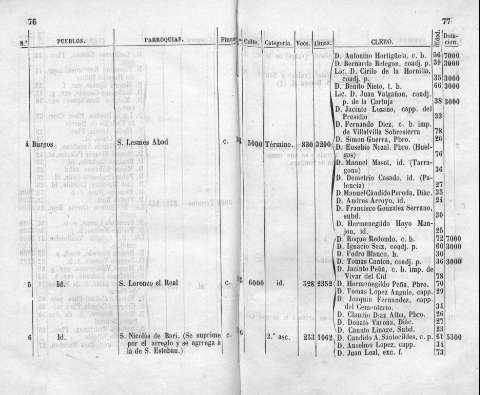 76
77
N.º PUEBLOS. PARROQUIAS. Culto. Categoría. Vecs. CLERO. Edad. Dotacion.
D. Antonino Hortigüela, c. b. 56 7000
D. Bernardo Belegos, coadj. p. 39 3000
Lic. D. Cirilo de la Hormilla,
coadj. p. 35 3000
D. Benito Nieto, t. b. 66 3000
Lic. D. Juan Valgañon, coadj.
p. de la Cartuja 38 3000
D. Jacinto Lozano, capp. del
Presidio 33
D. Fernando Diez, c. b. imp.
de Villalvilla Sobresierra 78
D. Simon Guerra, Pbro. 26
4 Burgos S. Lesmes Abad c. 5000 Término. 830 3290 D. Eusebio Nozal, Pbro. (Huel-
gos) 76
D. Manuel Masot, id. (Tarra-
gona) 36
D. Demetrio Casado, id. (Pa-
lencia) 27
D. Manuel Cándido Pereda, Diác. 35
D. Andres Arroyo, id. 24
D. Francisco Gonzalez Serrano,
subd. 30
D. Hermenegildo Hoyo Man-
jon, id. 25
D. Roque Redondo, c. b. 72 7000
D. Ignacio Seix, coadj. p. 60 3000
D. Pedro Blanco, b. 30
D. Tomas Canton, coadj. p. 36 3000
D. Jacinto Peña, c. b. imp. de
Vivar del Cid 78
5 Id. S. Lorenzo el Real c. 6000 id. 528 2352 D. Hermenegildo Peña, Pbro. 70
D. Tomas Lopez Angulo, capp. 29
D. Joaquin Fernandez, capp.
del Cementerio. 34
D. Claudio Diaz Alba, Pbro. 26
D. Donato Varona, Diác. 27
D. Canuto Linage, Subd. 23
6 Id. S. Nicolás de Bari. (Se suprime c. 2.º asc. 253 1062 D. Candido A. Santocildes, c. p. 61 5500
por el arreglo y se agrega á
la de S. Esteban.)
D. Anselmo Lopez, capp. 34
D. Juan Leal, exc. f. 73